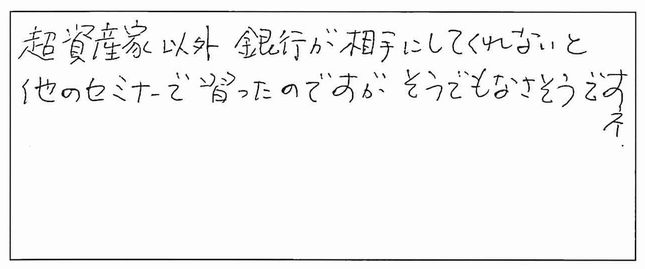 超資産家以外 銀行が相手にしてくれないと
他のセミナーで習ったのですが、そうでもなさそうです
ネ.